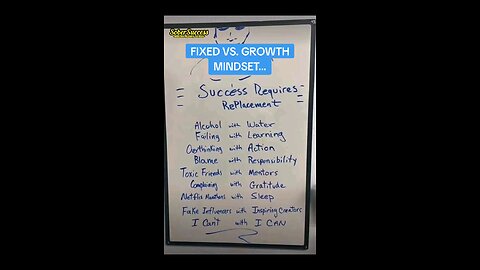 Sober Success
FIXED VS. GROWTH
MINDSET...
Success Requires
Replacement
Alcohol with Water
Failing with Learning
Overthinking with Action
Blame with Responsibility
Toxic Friends with Mentors
Complaining with Gratitude
Netflix Marathons with Sleep
Fake Influencers with Inspiring Creators
I Can't with I CAN